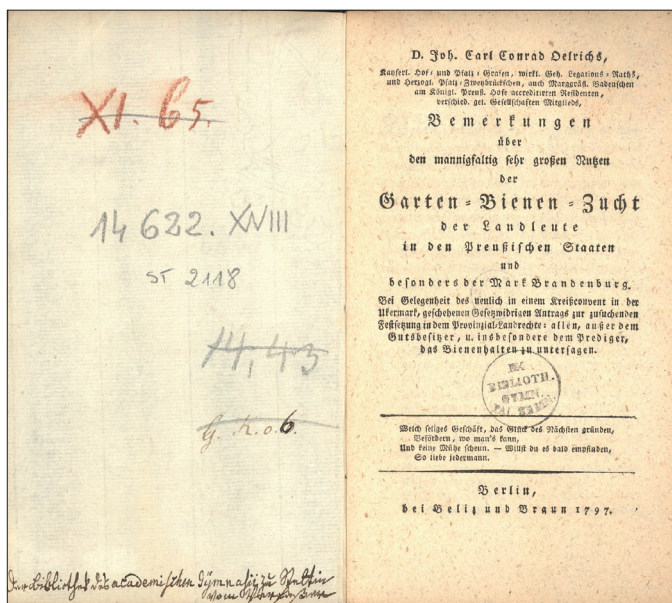 XI. b5.
14 622. XVIII
ST 2118
14,43
G. K. o. 6.
Der Bibliothek des academischen Gymnasii zu Stettin
vom Verfasser
D. Joh. Carl Conrad Oelrichs,
Kayserl. Hof- und Pfalz-Grafen, wirkl. Geh. Legations-Raths,
und Herzogl. Pfalz-Zweybrückschen, auch Marggräfl. Badenschen
am Königl. Preuß. Hofe accreditirten Residenten,
verschied. gel. Gesellschaften Mitglieds,
Bemerkungen
über
den mannigfaltig sehr großen Nutzen
der
Garten-Bienen-Zucht
der Landleute
in den Preußischen Staaten
und
besonders der Mark Brandenburg.
Bei Gelegenheit des neulich in einem Kreißconvent in der
Ukermark, geschehenen Gesetzwidrigen Antrags zur zusuchenden
Festsetzung in dem Provinzial-Landrechte: allen, außer dem
Gutsbesitzer, u. insbesondere dem Prediger,
das Bienenhalten zu untersagen.
BIBLIOTH.
GYMN.
Welch seliges Geschäft, das Glück des Nächsten gründen,
Befördern, wo man's kann,
Und keine Mühe scheun. — Willst du es bald empfinden,
So liebe jedermann.
Berlin,
bei Belitz und Braun 1797.